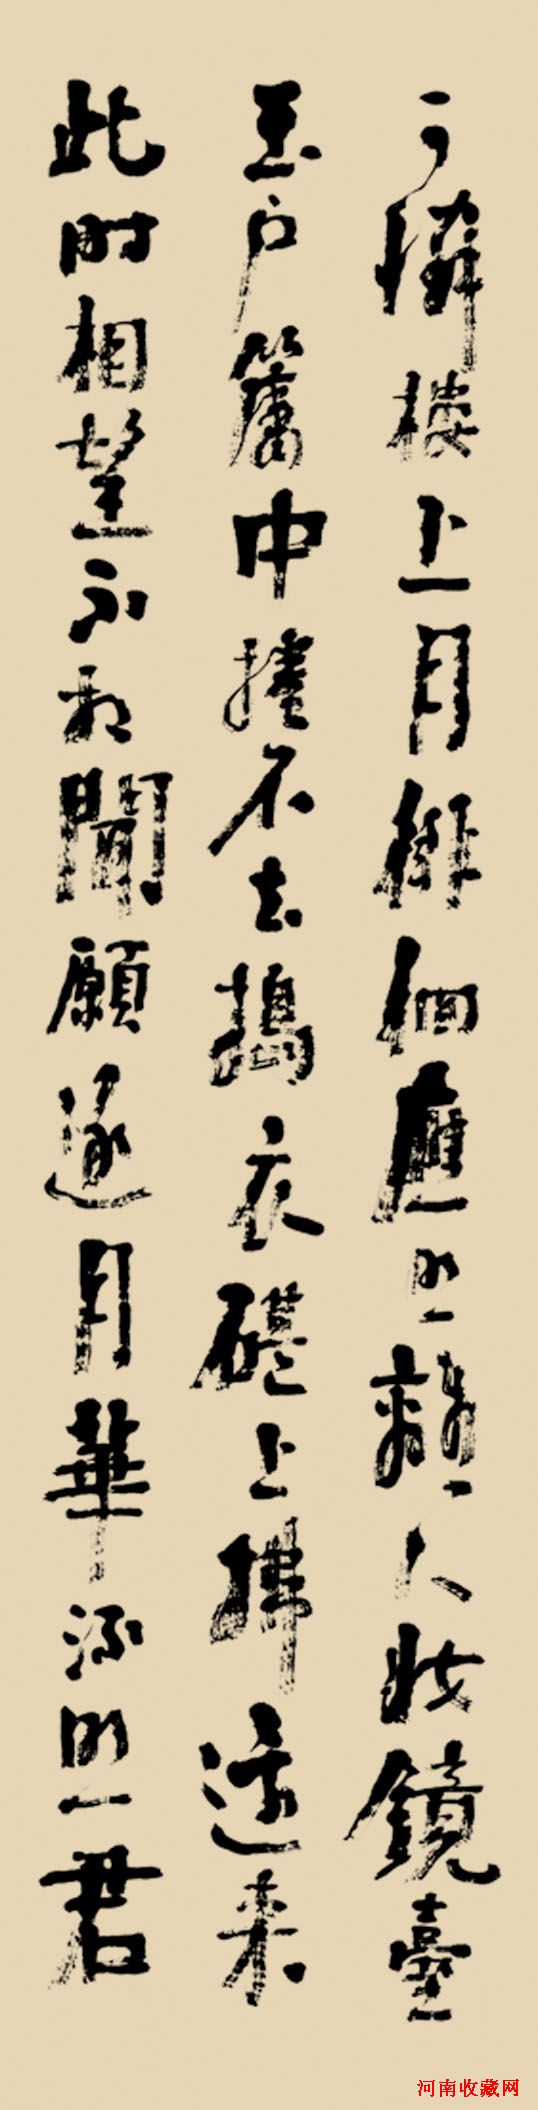 可憐楼上月徘徊應照離人妝鏡臺
玉户簾中捲不去搗衣碪上拂還来
此时相望不相聞願逐月華流照君
河南收藏网